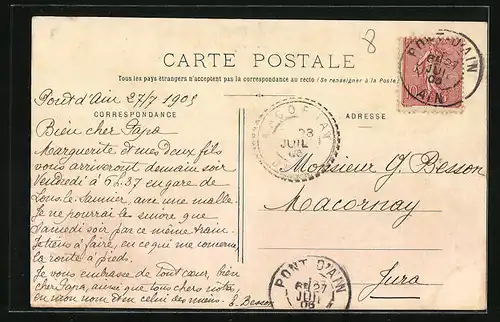 8
CARTE POSTALE
Tous les pays étrangers n'acceptent pas la correspondance au recto (Se renseigner à la Poste)
Pont d'Ain 27/7 1905
CORRESPONDANCE
ADRESSE
Bien cher Papa
Marguerite et mes deux fils
vous arriveront demain soir
Vendredi à 6h.37 en gare de
Lons-le-Saunier, avec une malle.
Je ne pourrai les suivre que
Samedi soir, par ce même train.
Je tiens à faire, en ce qui me concerne,
la route à pied.
Je vous embrasse de tout cœur, bien
cher Papa, ainsi que tous chers nôtres,
en mon nom et en celui des miens. E. Besson
Monsieur J. Besson
Macornay
Jura
PONT-D'AIN
27
JUIL
AIN
28
JUIL
PONT D'AIN
27
JUIL